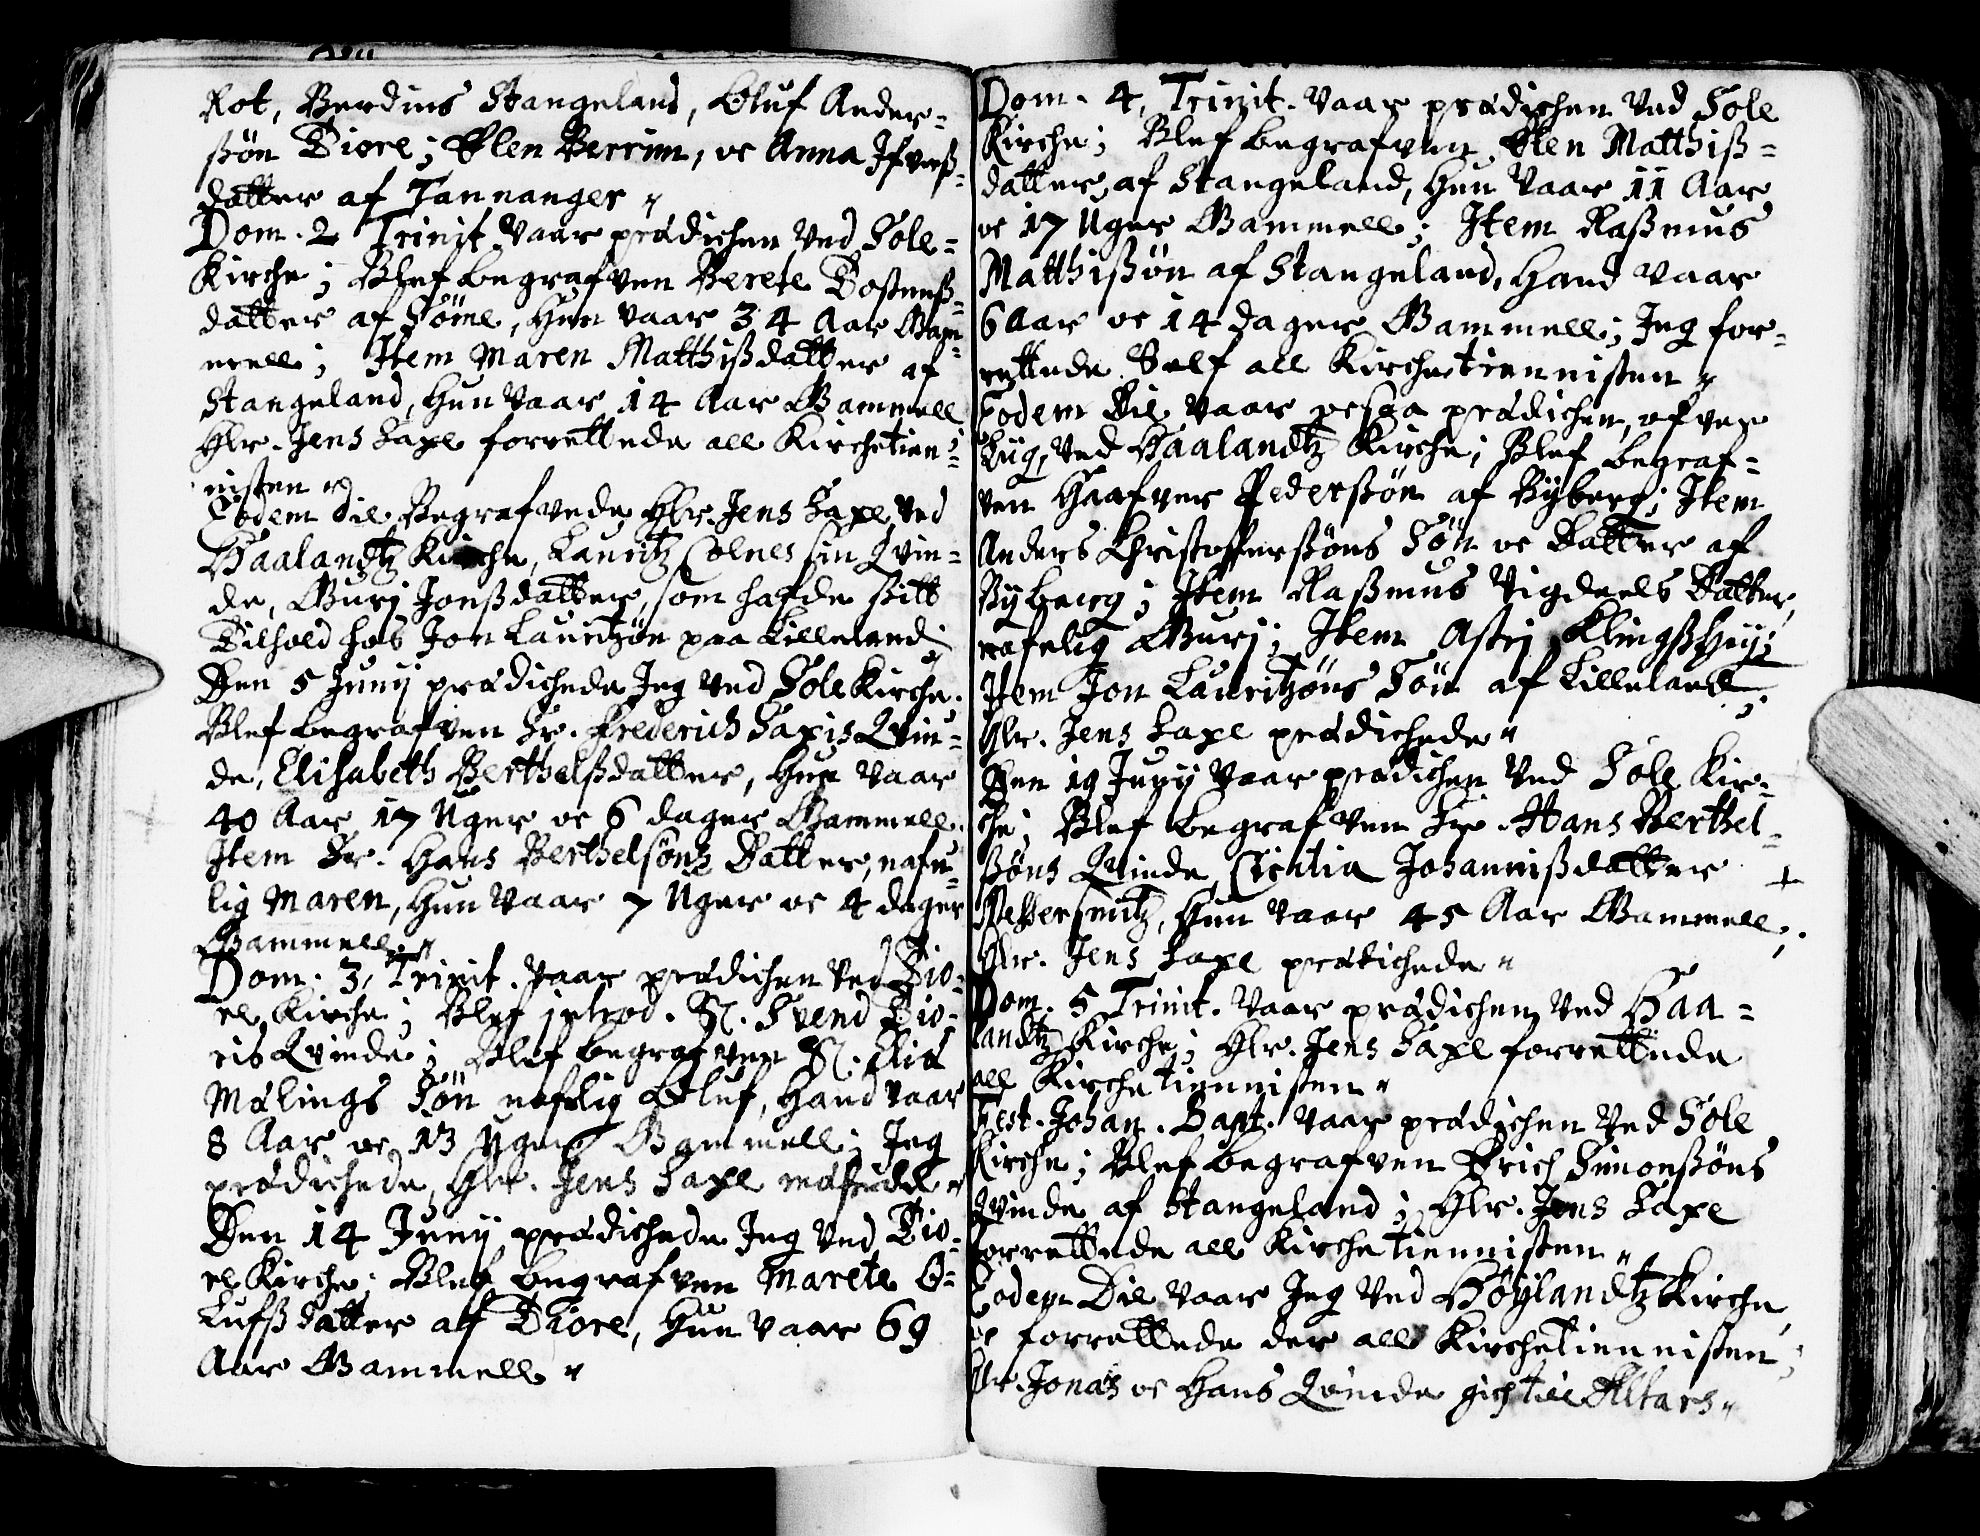 Rot, Berdius Stangeland, Oluf Ander=
ßön Diore; Elen Berrim, oc Anna Jfverß=
datter af Tannanger
Dom. 2 Trinit. vaar prædichen ved Sole=
Kirche; Blef begrafven Berete Toßtenß=
datter af Söme, Hun vaar 34 Aar Gam=
mell; Item Maren Matthißdatter af
Stangeland, Hun vaar 14 Aar Gammell;
Hlr. Jens Saxe forrettede all Kirchetien=
nisten
Eodem die Begrafvede Hlr. Jens Saxe ved
Haalandtz Kirche, Lauritz Colnes sin Qvin=
de, Gurj Jonßdatter, som hafde sitt
Tilhold hos Jon Lauritzön paa Lilleland;
Den 5 Junij prædichede Jeg ved Sole Kirche.
Blef begrafven Sr. Frederich Saxis Qvin=
de, Elisabeth Berthelßdatter, Hun vaar
40 Aar 17 Uger oc 6 dager Gammell.
Item Sr. Hans Berthelsöns Datter, nafn=
lig Maren, Hun vaar 7 Uger oc 4 dager
Gammell.
Dom. 3, Trinit. vaar prædichen ved Tio=
re Kirche; Blef introd. N. Svend Tio=
ris Qvinde; Blef begrafven N.
Mælings Sön nafnlig Oluf, Hand vaar
8 Aar oc 13 Uger Gammell; Jeg
prædichede, Hlr. Jens Saxe
Den 14 Junij prædichede Jeg ved Tio=
re Kirche; Blef begrafven Marete O=
Lufß datter af Diore, Hun vaar 69
Aar Gammell
Dom. 4, Trinit. vaar prædichen ved Sole
Kirche; Blef begrafven Elen Matthiß=
datter, af Stangeland, Hun vaar 11 Aar
oc 17 Uger Gammell; Item Raßmus
Matthißön af Stangeland, Hand vaar
6 Aar oc 14 dager Gammell; Jeg for=
rettede Self all Kirchetiennisten
Eodem Die vaar ocsaa prædichen, ofver
Liig, ved Haalandtz Kirche; Blef begraf=
ven Haafver Pederßön af Ryberg; Item
Anders Christofferßöns Sön oc Datter af
Ryberg; Item Raßmus Vigdeels Datter,
nafnlig Gurj; Item Astrj Klingßhey;
Item Jon Lauritzöns Sön af Lilleland;
Hlr. Jens Saxe prædichede
Den 19 Junij vaar prædichen ved Sole Kir=
che; Blef begrafven Sr. Hans Berthel=
ßöns Qvinde, Cicilia Johannißdatter
Messersmitz, Hun vaar 45 Aar Gammell;
Hlr. Jens Saxe prædichede
Dom. 5 Trinit. vaar prædichen ved Haa=
landtz Kirche; Hlr. Jens Saxe forrettede
all Kirchetiennisten
Fest. Johan. Bapt. vaar prædichen ved Sole
Kirche; Blef begrafven Erich Simonßöns
Qvinde af Stangeland; Hlr. Jens Saxe
forrettede all Kirchetiennisten
Eodem Die vaar Jeg ved Höylandtz Kirche,
oc forrettede der all Kirchetiennisten;
Hr. Jonas oc Hans Qvinde gich till Altars